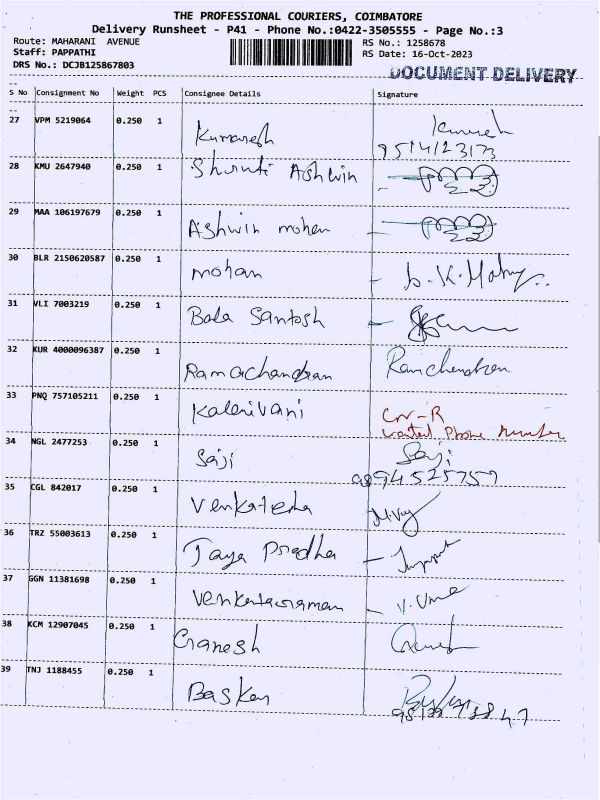 THE PROFESSIONAL COURIERS, COIMBATORE
Delivery Runsheet - P41 - Phone No.:0422-3505555 - Page No.:3
Route: MAHARANI AVENUE
RS No.: 1258678
Staff: PAPPATHI
RS Date: 16-Oct-2023
DRS No.: DCJB125867803
DOCUMENT DELIVERY
S No Consignment No Weight PCS Consignee Details Signature
27 VPM 5219064 0.250 1 Kumaresh
28 KMU 2647940 0.250 1 Shruti Ashwin
29 MAA 106197679 0.250 1 Ashwin mohan
30 BLR 2150620587 0.250 1 mohan
31 VLI 7003219 0.250 1 Bala Santosh
32 KUR 4000096387 0.250 1 Ramachandran Ramchendran
33 PNQ 757105211 0.250 1 Kalaivani CN-R
wanted Phone Number
34 NGL 2477253 0.250 1 Saiji Saiji
9894525757
35 CGL 842017 0.250 1 Venkatesha
36 TRZ 55003613 0.250 1 Jaya Pradha
37 GGN 11381698 0.250 1 Venkataraman
38 KCM 12907045 0.250 1 Ganesh
39 TNJ 1188455 0.250 1 Baskar